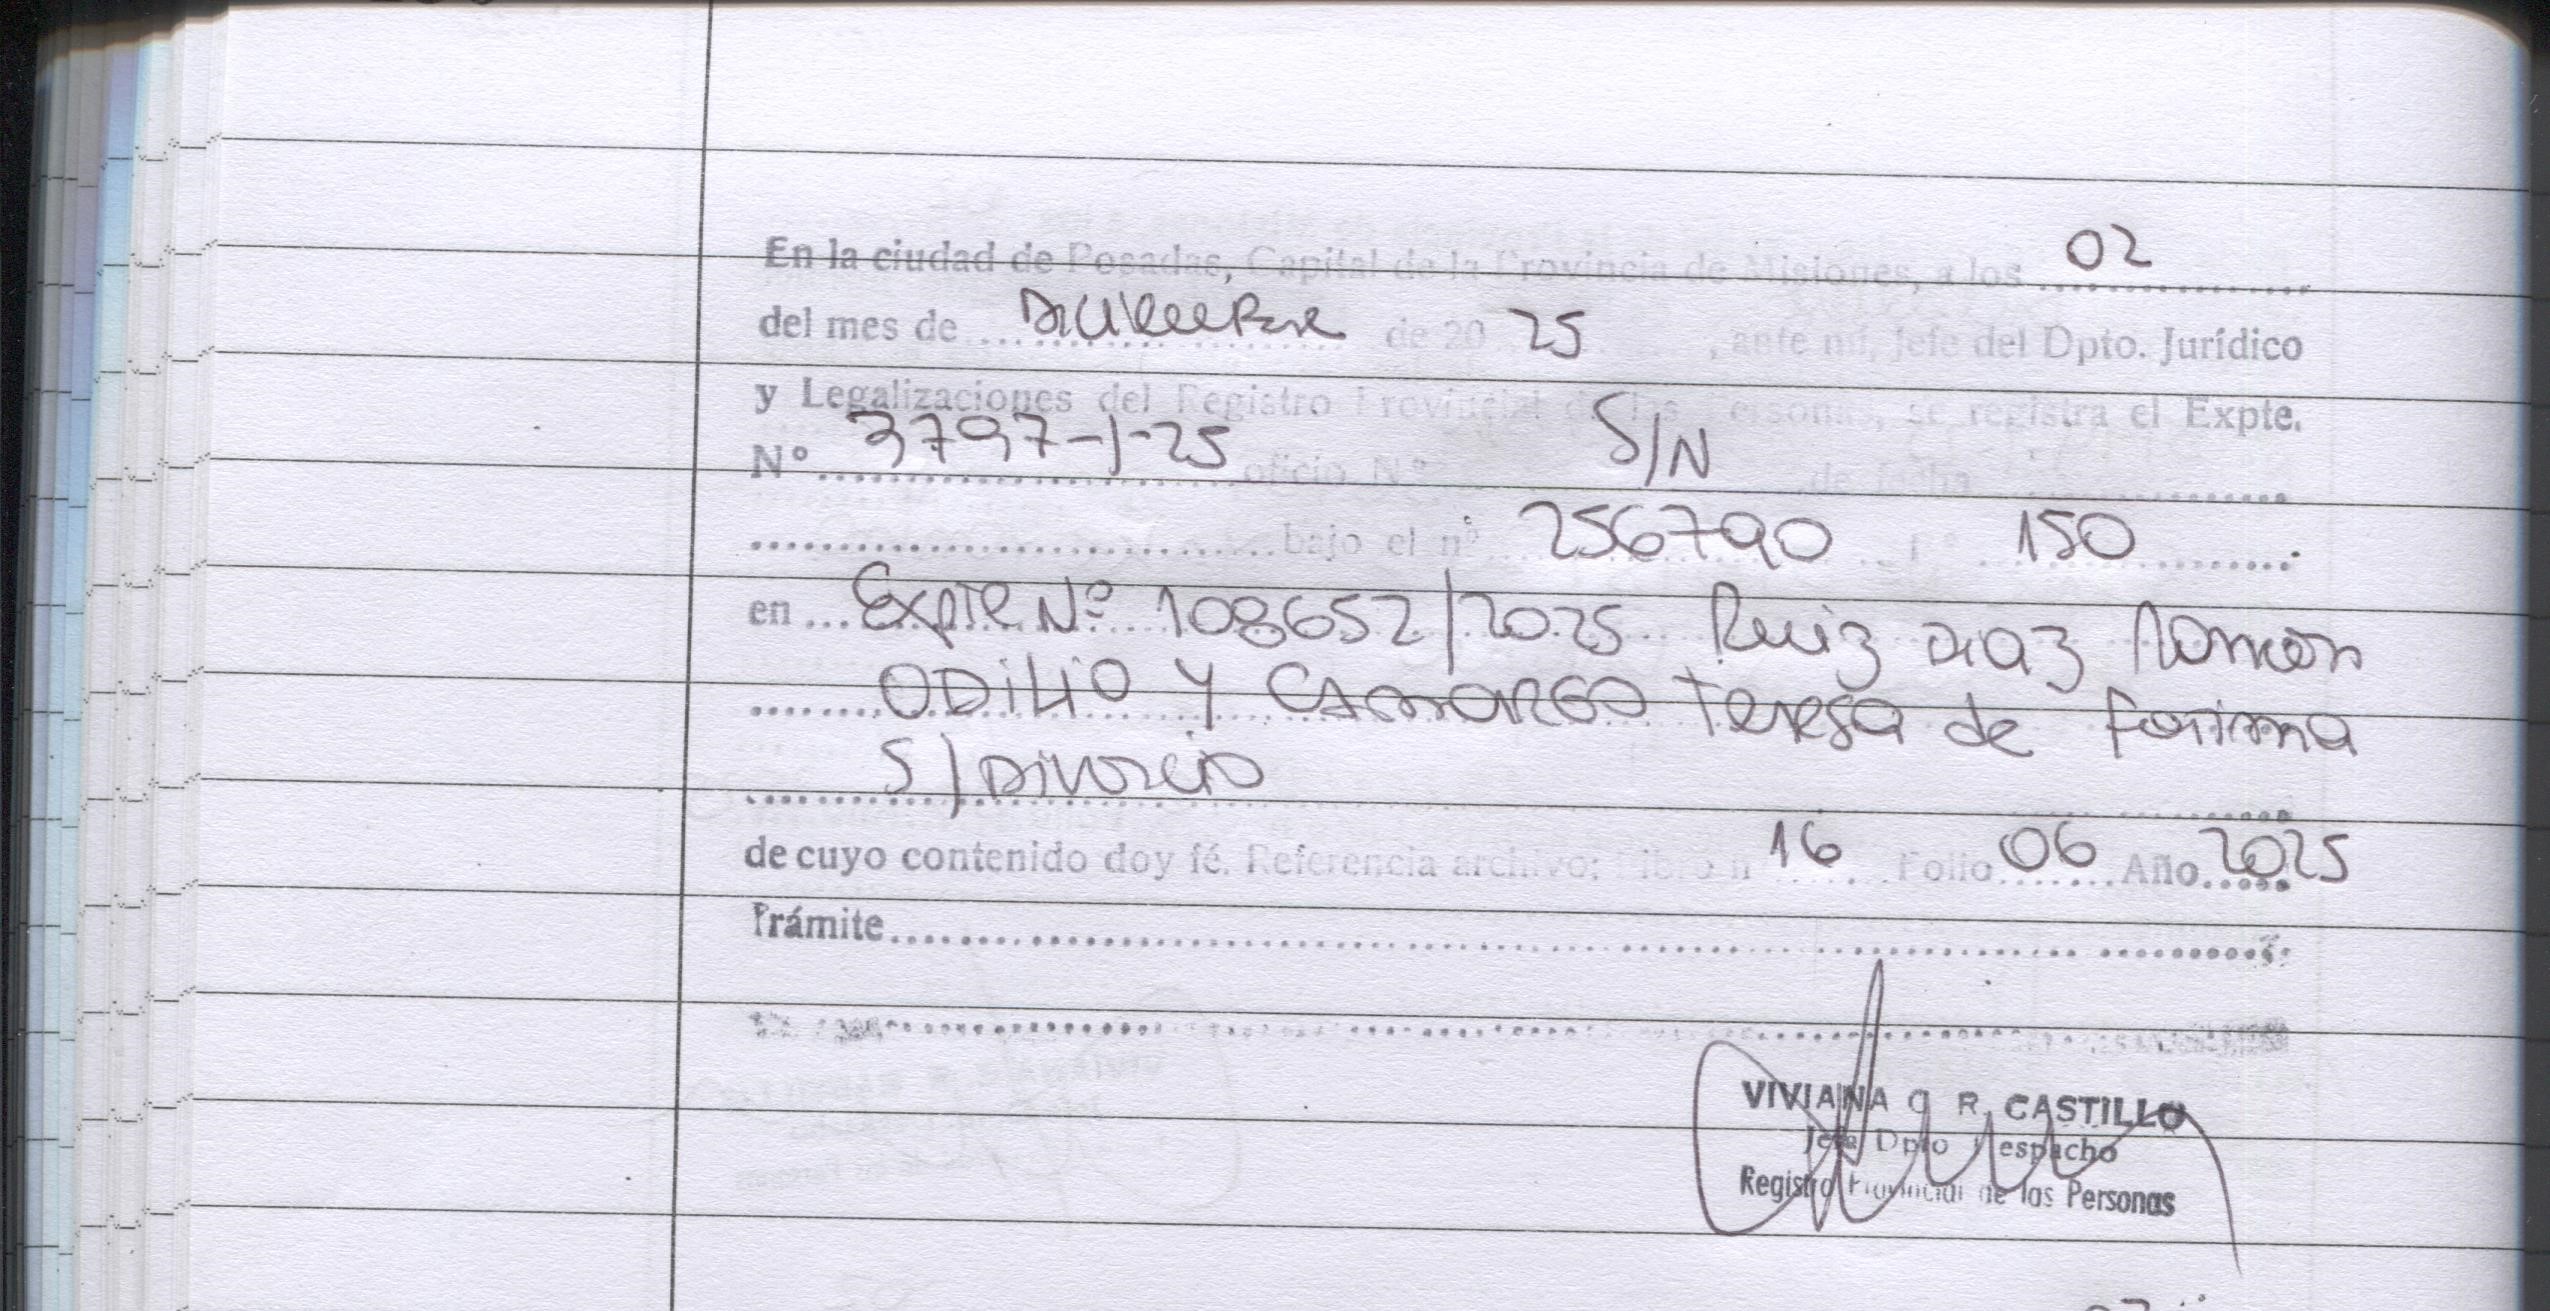 En la ciudad de Posadas, Capital de la Provincia de Misiones, a los 02
del mes de Diciembre de 2025, ante mí, Jefe del Dpto. Jurídico
y Legalizaciones del Registro Provincial de las Personas, se registra el Expte.
Nº 3797-J-25 oficio Nº S/N de fecha
bajo el nº 256790 Fº 150
en Expte Nº 108652/2025 Ruiz Diaz Ramon
ODiLiO y CAmARGO Teresa de Fatima
S/Divorcio
de cuyo contenido doy fé. Referencia archivo: Libro n 16 Folio 06 Año 2025
Trámite
VIVIANA C R. CASTILLO
Jefa Dpto Despacho
Registro Provincial de las Personas